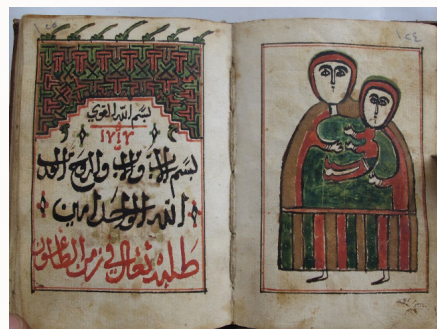 بسم الله القوي
بسم الاب والابن والروح القدس
الله الواحد امين
طلبه تقال في زمن الطاعون
١٢٤